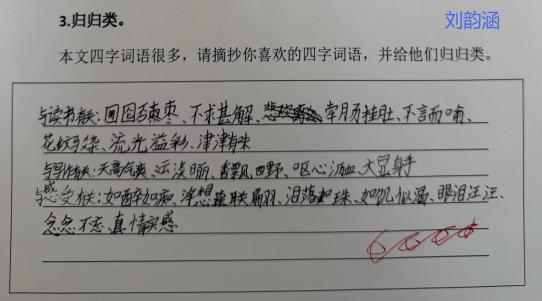 3.归归类。
刘韵涵
本文四字词语很多，请摘抄你喜欢的四字词语，并给他们归归类。
与读书有关：囫囵吞枣、不求甚解、牵肠挂肚、不言而喻、
花红点染、流光溢彩、津津有味
与写作有关：天高气爽、云淡日丽、香飘四野、呕心沥血、大显身手
与感受有关：如醉如痴、浮想联翩、泪落如珠、如饥似渴、眼泪汪汪、
念念不忘、真情实感